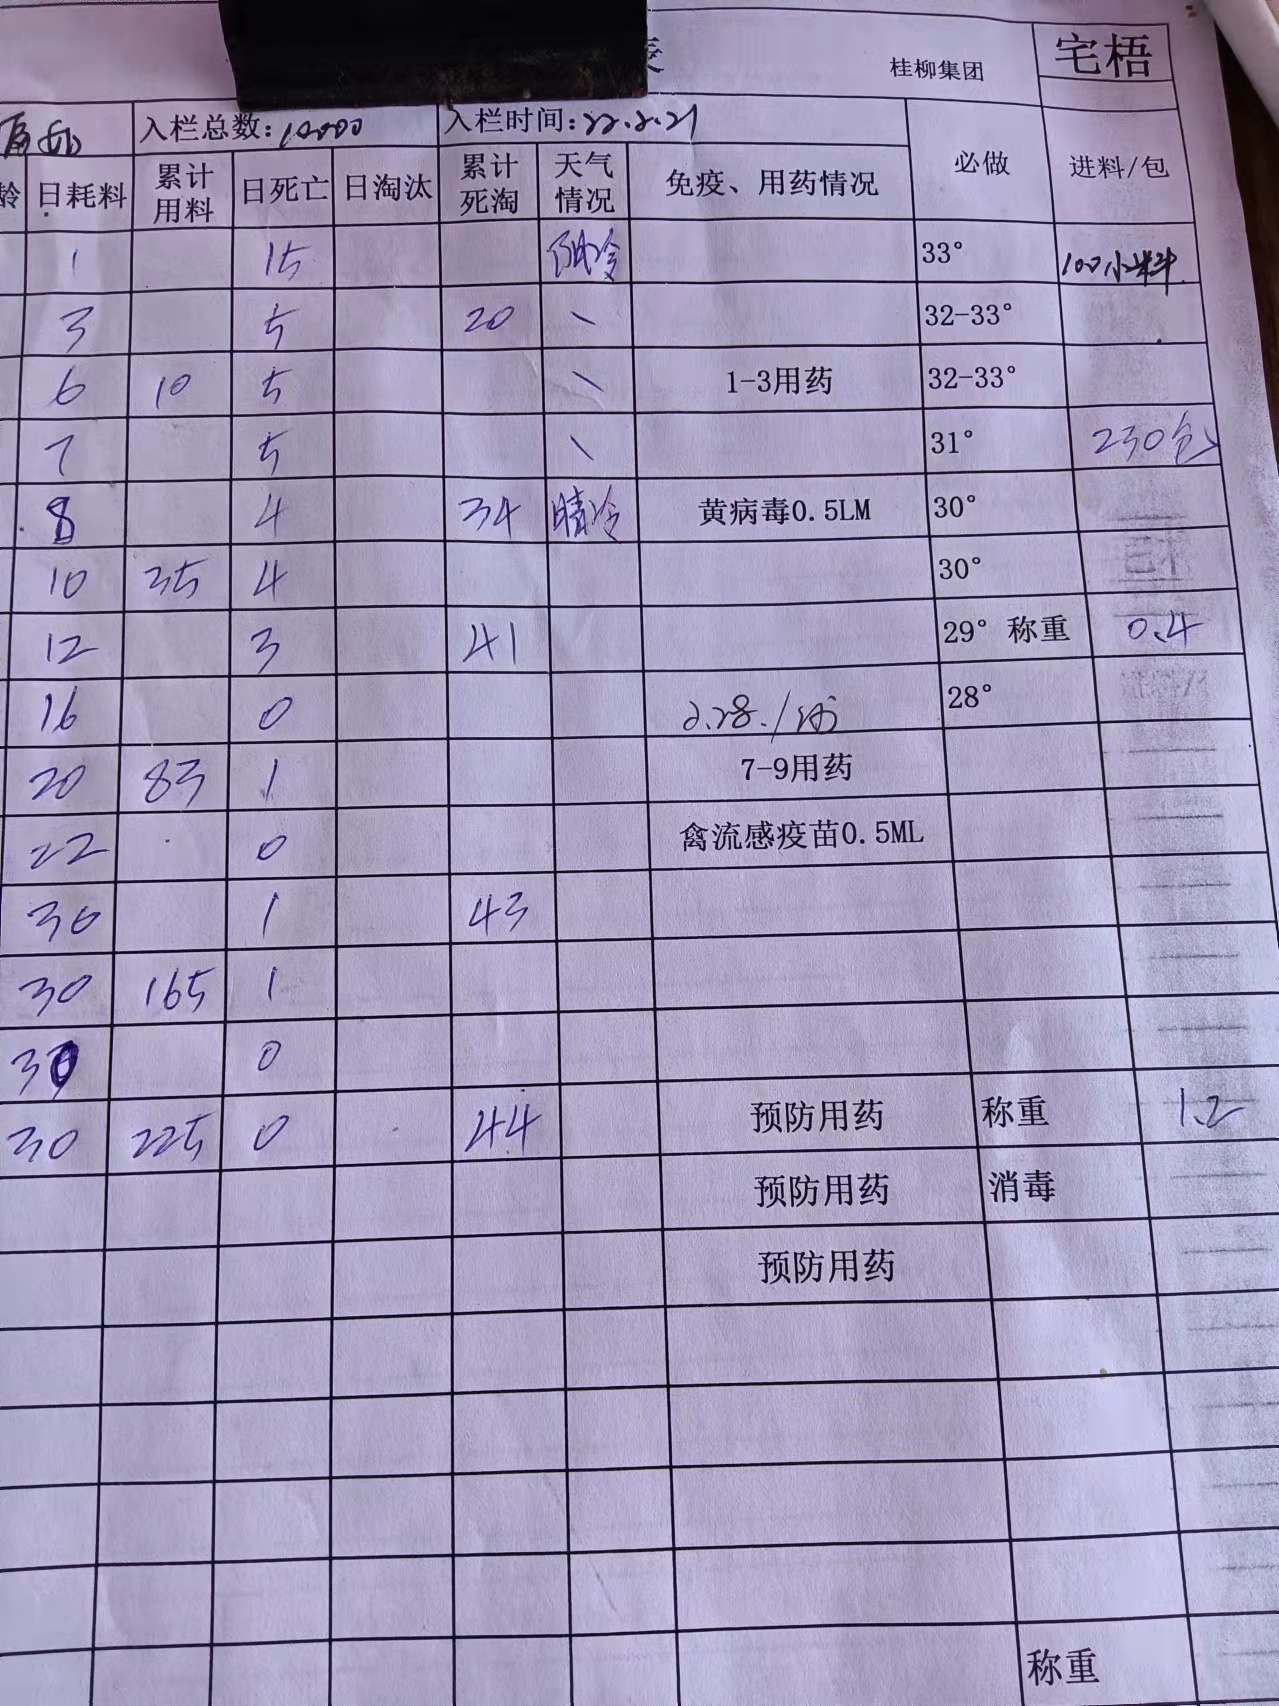 桂柳集团 宅梧
入栏总数: 入栏时间:22.2.21
龄 日耗料 累计用料 日死亡 日淘汰 累计死淘 天气情况 免疫、用药情况 必做 进料/包
1 15 阴冷 33° 100小料
3 5 20 、 32-33°
6 10 5 、 1-3用药 32-33°
7 5 、 31° 230包
8 4 34 晴冷 黄病毒0.5LM 30°
10 35 4 30°
12 3 41 29° 称重 0.4
16 0 2.28./ 28°
20 83 1 7-9用药
22 0 禽流感疫苗0.5ML
30 1 43
30 165 1
30 0
30 225 0 44 预防用药 称重 1.2
预防用药 消毒
预防用药
称重